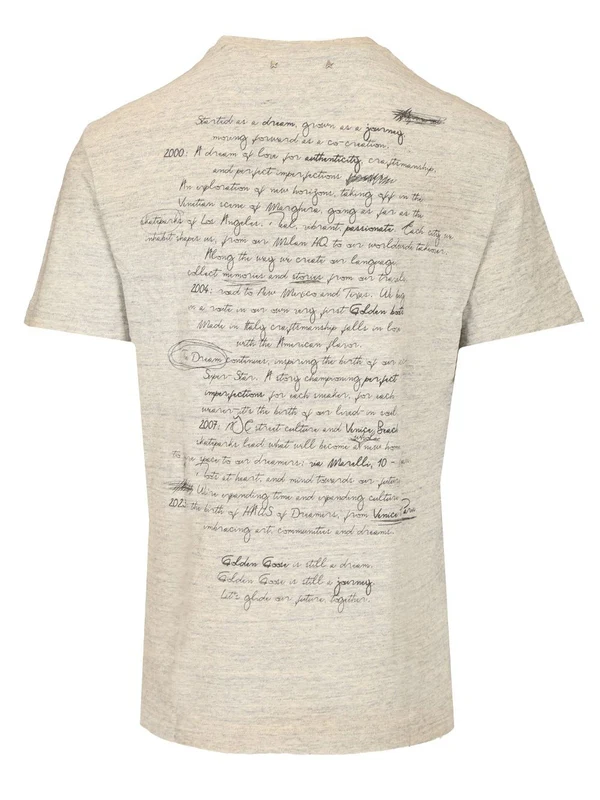 Started as a dream, grown as a journey,
moving forward as a co-creation.
2000: A dream of love for authenticity, craftsmanship,
and perfect imperfections
An exploration of new horizons, taking off in the
Venetian scene of Marghera, going as far as the
skateparks of Los Angeles. Real, vibrant, passionate. Each city we
inhabit shapes us, from our Milan HQ to our worldwide takeover.
Along the way we create our language,
collect memories and stories from our travels
2004: road to New Mexico and Texas. We beg
in a route in our own very first Golden boots
Made in Italy craftmanship falls in love
with the American flavor.
Dream continues, inspiring the birth of our
Super-Star. A story championing perfect
imperfections for each sneaker, for each
wearer-it's the birth of our lived-in soul.
2007: NYC street culture and Venice Beach
skateparks lead what will become a new home
space to our dreamers; via Marelli, 10 -
at heart, and mind towards our future
We're expending time and expending culture
2023 the birth of HAUS of Dreamers, from Venice
embracing art, communities and dreams.
Golden Goose is still a dream.
Golden Goose is still a journey.
Let's glide our future, together.